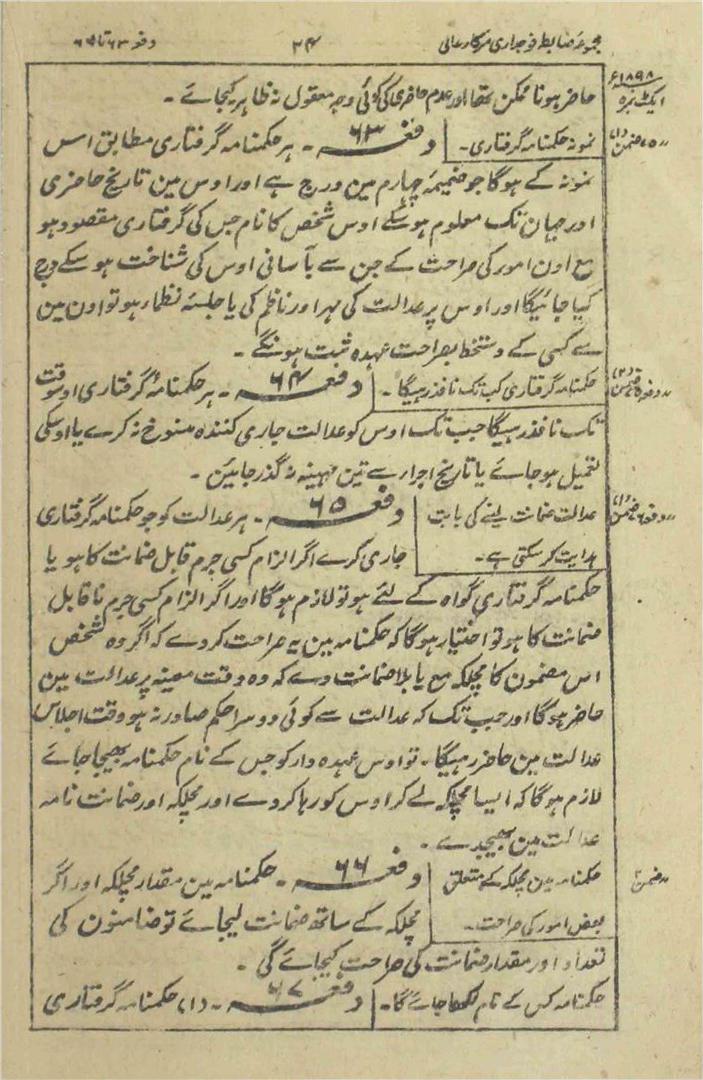 مجموعہ ضابطہ فوجداری سرکار عالی
۳۴
دفعہ ۶۳ تا ۶۵
۱۸۹۸ء
ایکٹ نمبر ۵
حاضر ہونا ممکن تھا اور عدم حاضری کی کوئی وجہ معقول نہ ظاہر کیجائے ۔
۷۵ ضمن (۱)
نمونہ حکمنامہ گرفتاری ۔
دفعہ ۶۳ ۔ ہر حکمنامہ گرفتاری مطابق اس
نمونہ کے ہوگا جو ضمیمہ چہارم مین درج ہے اور اوس مین تاریخ حاضری
اور جہان تک معلوم ہوسکے اوس شخص کا نام جس کی گرفتاری مقصود ہو
مع اون امور کی صراحت کے جن سے بآسانی اوس کی شناخت ہوسکے درج
کیا جائیگا اور اوس پر عدالت کی مہر اور ناظم کی یا جلسۂ نظماء ہو تو اون مین
سے کسی کے دستخط بصراحت عہدہ ثبت ہونگے ۔
ضمن (۲)
حکمنامہ گرفتاری کب تک نافذ رہیگا ۔
دفعہ ۶۴ ۔ ہر حکمنامۂ گرفتاری اوسوقت
تک نافذ رہیگا جب تک اوس کو عدالت جاری کنندہ منسوخ نہ کرے یا اوسکی
تعمیل ہوجائے یا تاریخ اجرار سے تین مہینہ نہ گذر جائین ۔
دفعہ ۷۶ ضمن (۱)
عدالت ضمانت لینے کی بابت
ہدایت کرسکتی ہے ۔
دفعہ ۶۵ ۔ ہر عدالت کو جو حکمنامہ گرفتاری
جاری کرے اگر الزام کسی جرم قابل ضمانت کا ہو یا
حکمنامہ گرفتاری گواہ کے لئے ہو تو لازم ہوگا اور اگر الزام کسی جرم ناقابل
ضمانت کا ہو تو اختیار ہوگا کہ حکمنامہ مین یہ صراحت کردے کہ اگر وہ شخص
اس مضمون کا مچلکہ مع یا بلا ضمانت دے کہ وہ وقت معینہ پر عدالت مین
حاضر ہوگا اور جب تک کہ عدالت سے کوئی دوسرا حکم صادر نہ ہو وقت اجلاس
عدالت مین حاضر رہیگا ۔ تو اوس عہدہ دار کو جس کے نام حکمنامہ بھیجا جائے
لازم ہوگا کہ ایسا مچلکہ لے کر اوس کو رہا کردے اور مچلکہ اور ضمانت نامہ
عدالت مین بھیجدے ۔
ضمن
حکمنامہ مین مچلکہ کے متعلق
بعض امور کی صراحت ۔
دفعہ ۶۶ ۔ حکمنامہ مین مقدار مچلکہ اور اگر
مچلکہ کے ساتھ ضمانت لیجائے تو ضامنون کی
تعداد اور مقدار ضمانت کی صراحت کیجائے گی ۔
حکمنامہ کس کے نام لکھا جائے گا ۔
دفعہ ۶۷ ۔ (۱) حکمنامہ گرفتاری